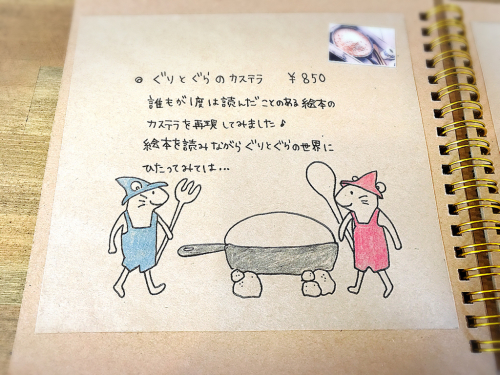 ◎ ぐりとぐらのカステラ ¥850
誰もが1度は読んだことのある絵本の
カステラを再現してみました♪
絵本を読みながらぐりとぐらの世界に
ひたってみては…